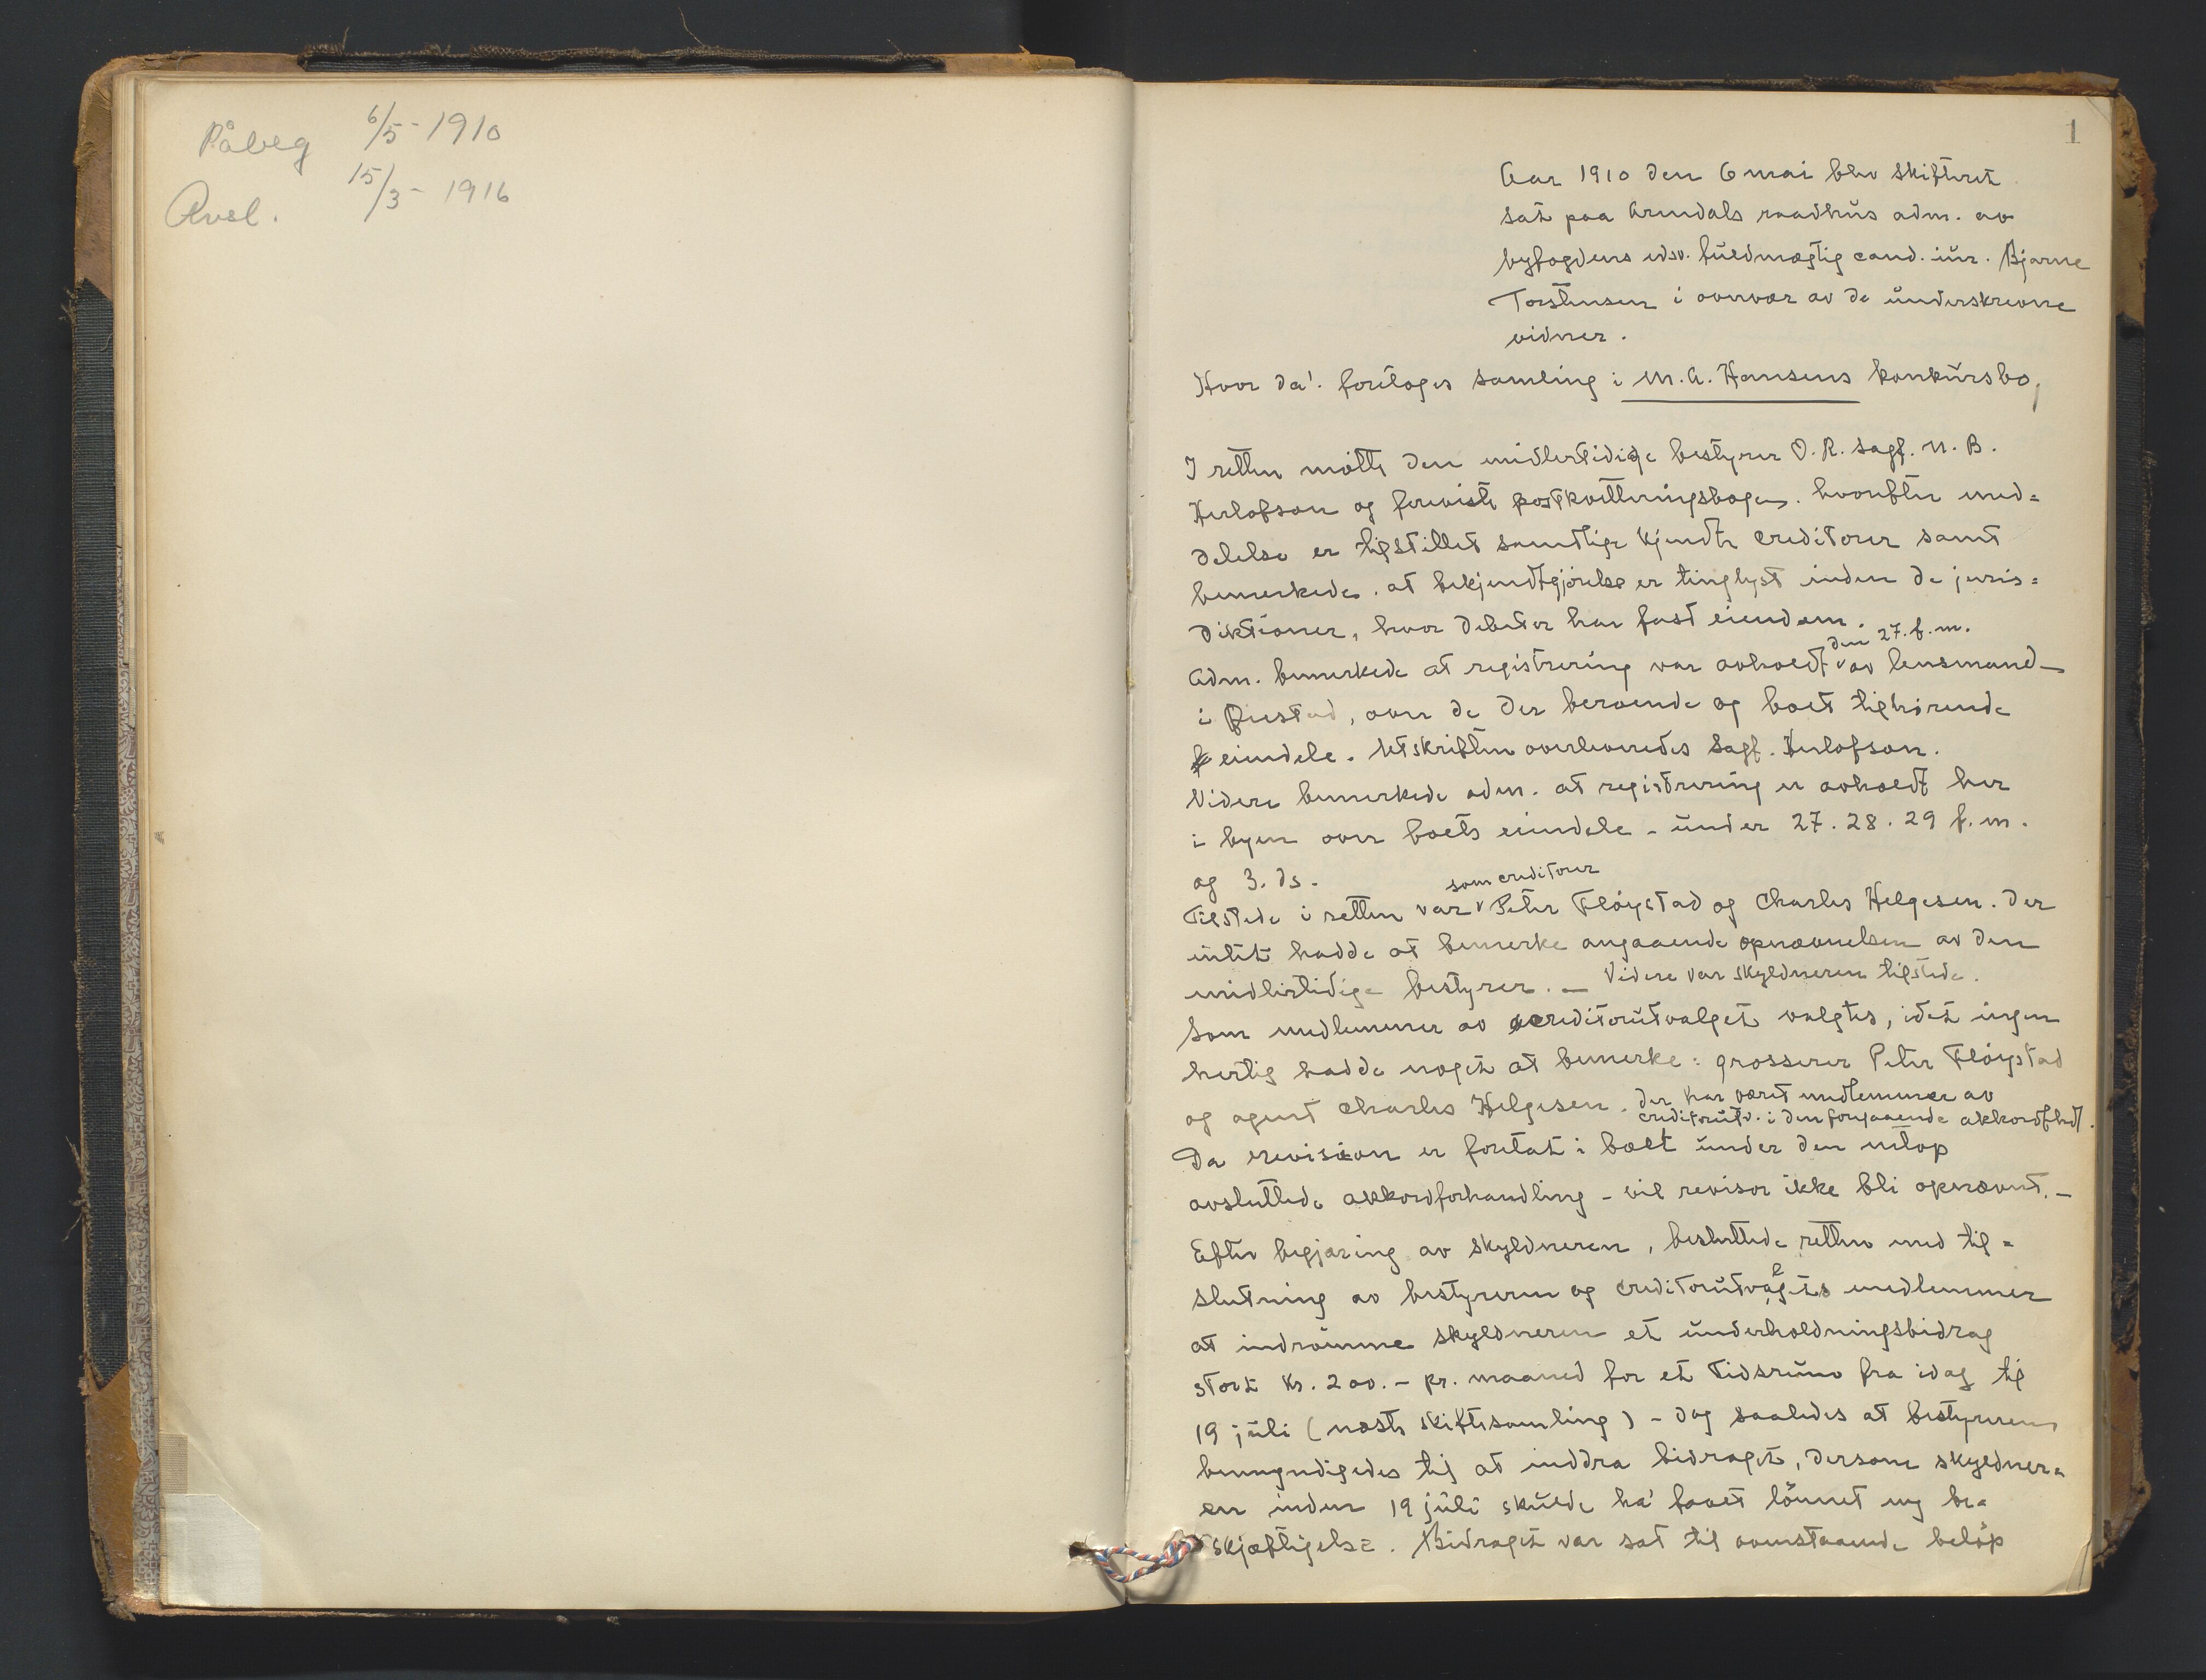 Påbeg 6/5 - 1910
Avsl. 15/3 - 1916
1
Aar 1910 den 6 mai blev skifteret
sat paa Arendals raadhus adm. av
byfogdens edsv. fuldmægtig cand. jur. Bjarne
Torstensen i overvær av de underskrevne
vidner.
Hvor da! foretoges samling i M. A. Hansens konkursbo,
I retten møtte den midlertidige bestyrer O. R. sagf. N. B.
Herlofson og foreviste postkvitteringsbogen. hvorefter med=
delelse er tilstillet samtlige kjendte creditorer samt
bemerkede. at bekjendtgjørelse er tinglyst inden de juris=
diktioner, hvor debitor har fast eiendom.
den 27. f. m.
Adm. bemerkede at registrering var avholdt av lensmand
i , over de der beroende og boet tilhørende
eiendele. Utskriften overleveredes sagf. Herlofson.
Videre bemerkede adm. at registrering er avholdt her
i byen over boets eiendele - under 27. 28. 29 f. m.
og 3. ds.
som creditorer
Tilstede i retten var Peter Fløystad og Charles Helgesen. der
intet hadde at bemerke angaaende opnævnelsen av den
midlertidige bestyrer. - Videre var skyldneren tilstede.
Som medlemmer av creditorutvalget valgtes, idet ingen
hertil hadde noget at bemerke: grosserer Peter Fløystad
og agent Charles Helgesen. der har været medlemmer av
creditorutv. i den forgaaende akkordfhdl.
Da revision er foretat i boet under den netop
avsluttede akkordforhandling - vil revisor ikke bli opnævnt. -
Efter begjæring av skyldneren, besluttede retten med til=
slutning av bestyreren og creditorutvalgets medlemmer
at indrømme skyldneren et underholdningsbidrag
stort kr. 200.- pr. maaned for et tidsrum fra idag til
19 juli (næste skiftesamling) - dog saaledes at bestyreren
bemyndigedes til at inddra bidraget, dersom skyldner=
en inden 19 juli skulde ha' faaet lønnet ny be=
skjæftigelse. Bidraget var sat til ovenstaaende beløp